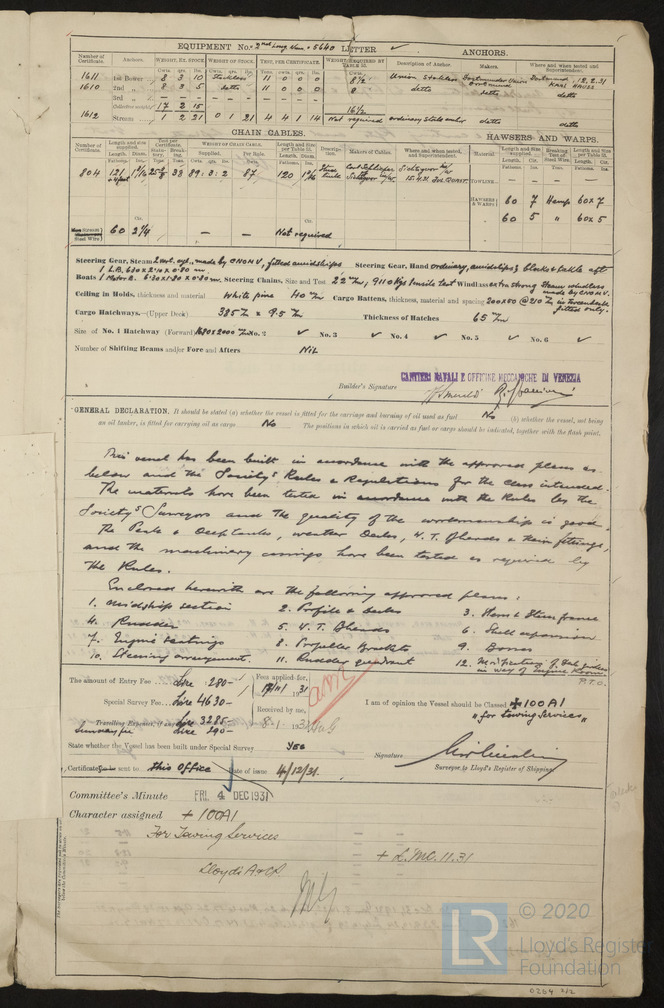 EQUIPMENT No. 2nd Long Num = 5640 LETTER ✓ ANCHORS.
Number of Certificate. Anchors. WEIGHT, EX. STOCK. WEIGHT OF STOCK. TEST, PER CERTIFICATE. WEIGHT REQUIRED BY TABLE 31. Description of Anchor. Makers. Where and when tested and Superintendent.
Cwts. qrs. lbs. Cwts. qrs. lbs. Tons. cwts. qrs. lbs. Cwts.
1611 1st Bower 8 3 10 Stockless 11 0 0 0 8½ Union Stockless Dortmunder Union Dortmund Dortmund 12.2.31
1610 2nd „ 8 3 5 ditto 11 0 0 0 8 ditto ditto KARL KRUSS
3rd „ ditto
Collective weight 17 2 15 16½
1612 Stream 1 2 21 0 1 21 4 4 1 14 Not required ordinary Stock anchor ditto ditto
CHAIN CABLES. HAWSERS AND WARPS.
Number of Certificate. Length and size supplied. Test per Certificate. WEIGHT OF CHAIN CABLE. Length and Size per Table 31. Description. Makers of Cables. Where and when tested, and Superintendent. Material Length and Size supplied. Breaking Test of Steel Wire. Length and Size per Table 31.
Supplied. Per Rule.
804 33 89: 3: 2 87 120 1 1/16
TOWLINE
HAWSERS & WARPS 60 7 Hemp 60 x 7
60 5 „ 60 x 5
Steel Wire 60 2¼ — — Not required
Steering Gear, Steam 2 vert. cyl., made by CNOMV, fitted amidships Steering Gear, Hand ordinary, amidships & blocks & tackle aft
Boats 1 L.B. 630 x 2.10 x 0.80 m.
1 Motor B. 6.30 x 1.80 x 0.80 m. Steering Chains, Size and Test 22 m/m, 9110 Kgs tensile test Windlass extra strong Steam windlass made by CNOMV.
Ceiling in Holds, thickness and material White pine 40 m/m Cargo Battens, thickness, material and spacing 200x50 @ 210 m/m
fitted only.
Cargo Hatchways.—(Upper Deck) Thickness of Hatches 65 m/m
Size of No. 1 Hatchway (Forward) No. 2 ✓ No. 3 ✓ No. 4 ✓ No. 5 ✓ No. 6 ✓
Number of Shifting Beams and/or Fore and Afters Nil
CANTIERI NAVALI E OFFICINE MECCANICHE DI VENEZIA
Builder's Signature
GENERAL DECLARATION. It should be stated (a) whether the vessel is fitted for the carriage and burning of oil used as fuel No (b) whether the vessel, not being
an oil tanker, is fitted for carrying oil as cargo No The positions in which oil is carried as fuel or cargo should be indicated, together with the flash point.
This vessel has been built in accordance with the approved plans as
below and the Society's Rules & Regulations for the class intended.
The materials have been tested in accordance with the Rules by the
Society's Surveyors and the quality of the workmanship is good.
The Peak & Deep tanks, weather Decks, W.T. Bheads & their fittings,
and the machinery casings have been tested as required by
the Rules.
Enclosed herewith are the following approved plans:
1. Midship section 2. Profile & decks 3. Stem & Stern frame
4. Rudder 5. W.T. Bheads 6. Shell expansion
7. Engine seatings 8. Propeller Brackets 9. Bosses
10. Steering arrangement. 11. Rudder quadrant 12. Modification of
in way of Engine Room
P.T.O.
The amount of Entry Fee Lire 280=
Fees applied for, 17/11/1931
Special Survey Fee Lire 4630—
Received by me,
Travelling Expenses, if any Lire 3285
Lire 290—
8.1.193
I am of opinion the Vessel should be Classed +100A1
„for towing services„
State whether the Vessel has been built under Special Survey Yes
Signature
Surveyor to Lloyd's Register of Shipping.
Certificate to be sent to this Office Date of issue 4/12/31.
Committee's Minute FRI. 4 DEC 1931
Character assigned + 100A1
For Towing Services
+ LMC. 11.31
Lloyds A&CP.
© 2020
LR
Lloyd's Register
Foundation
0204 2/2